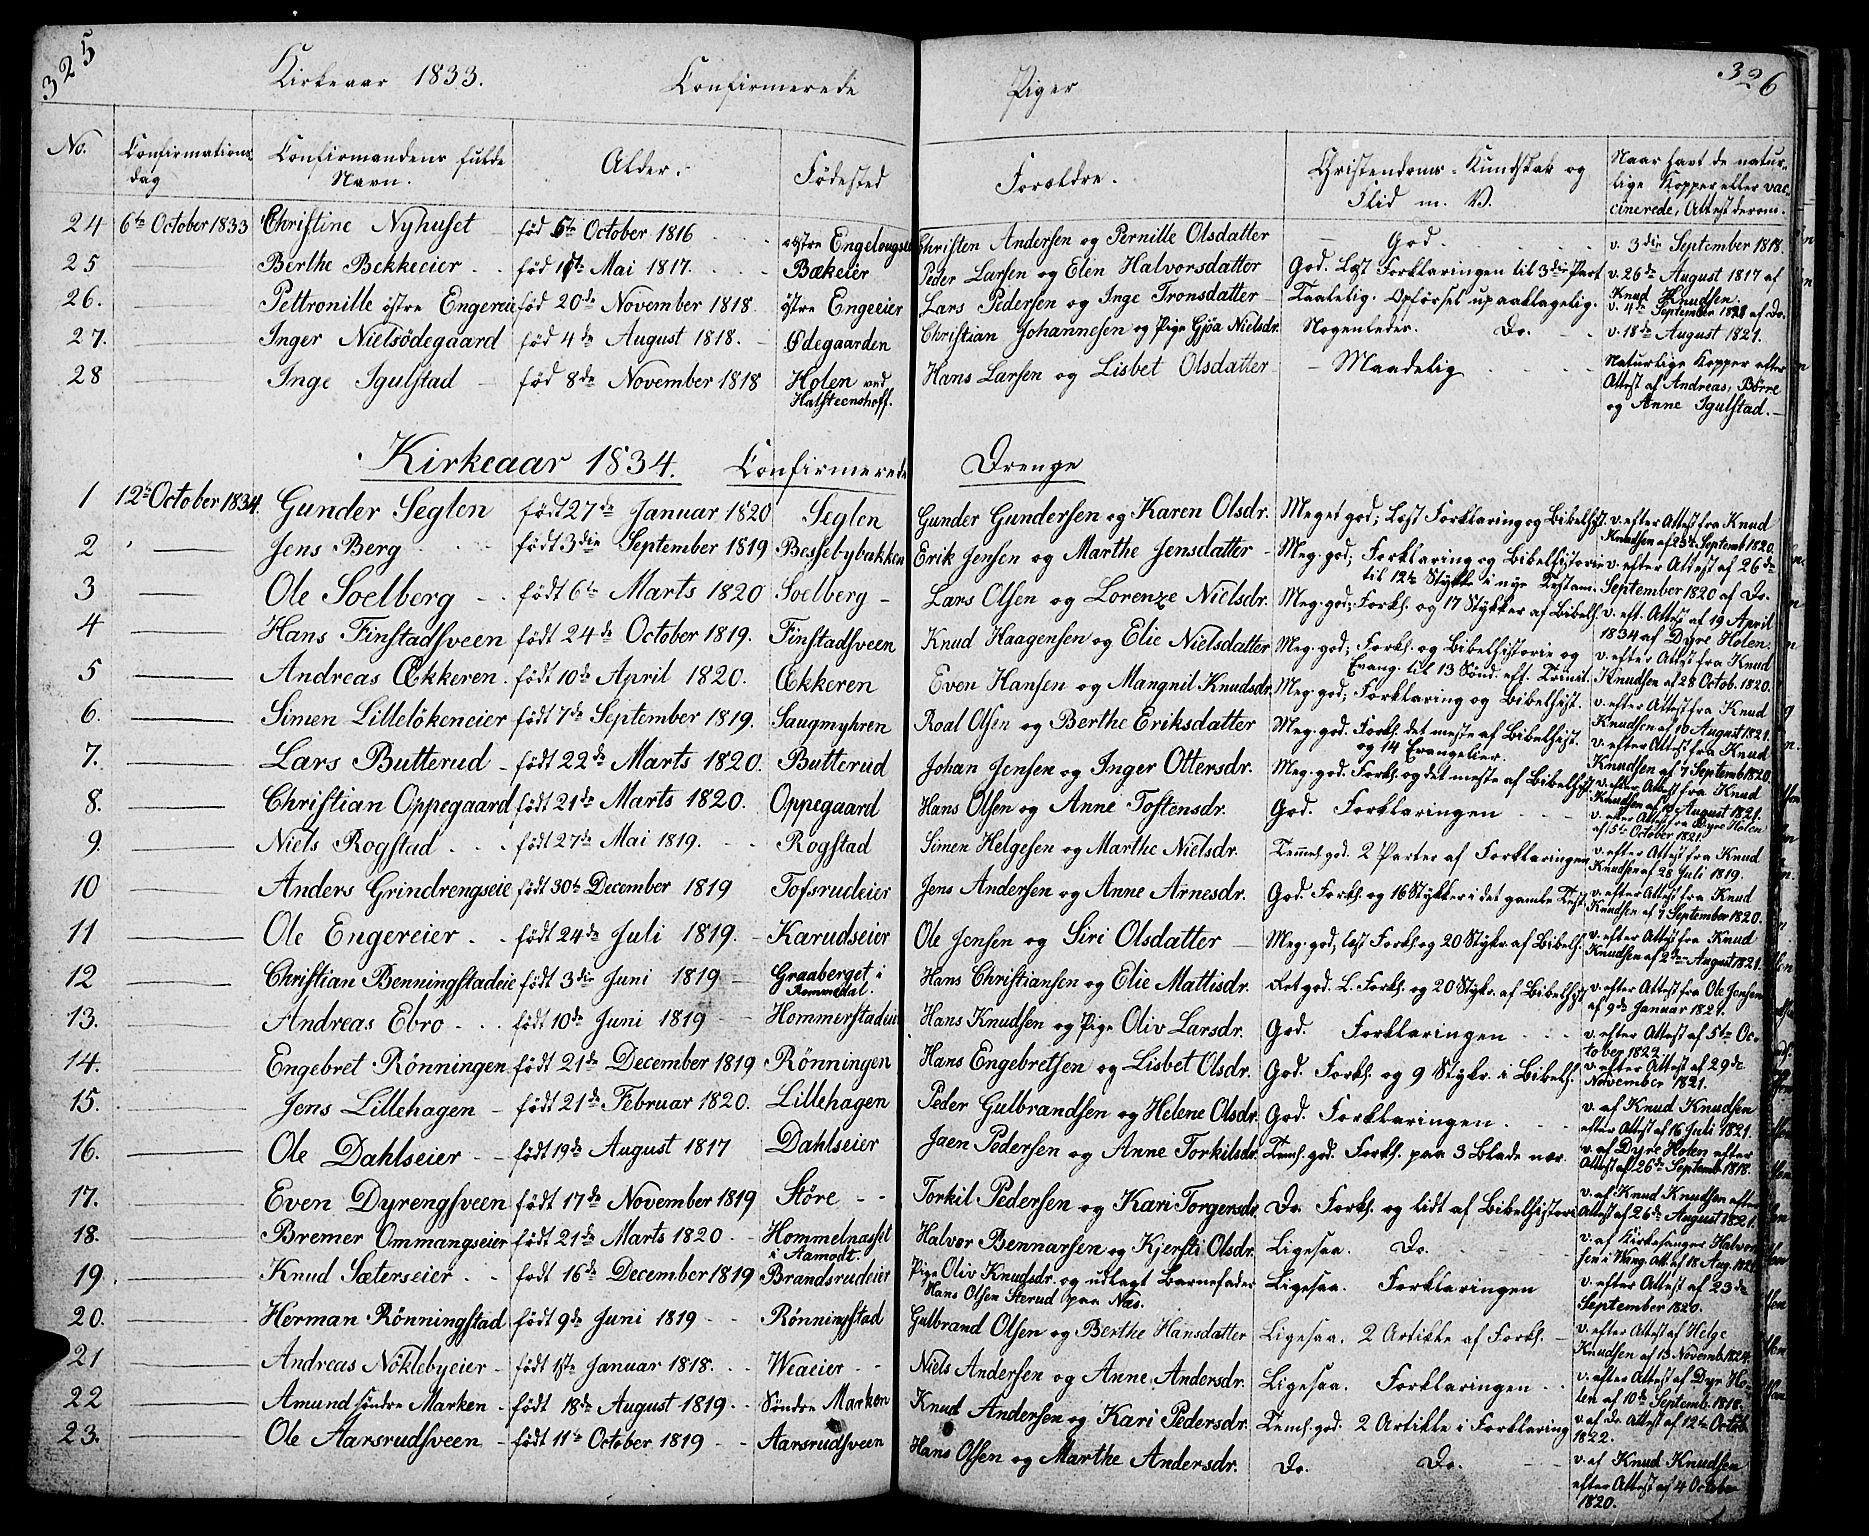 325
Kirkeaar 1833. Confirmerede Piger 326
No. Confirmations dag Confirmandens fulde Navn. Alder. Fødested Forældre. Christendoms-Kundskab og Flid m. V. Naar havt de naturlige Kopper eller vaccinerede, Attest derom.
24 6te October 1833 Christine Nyhuset fød 5te October 1816 östre Christen Andersen og Pernille Olsdatter God. v. 3die September 1818.
25 Berthe Bekkeeier fød Mai 1817. Bækeier Peder Larsen og Elen Halvorsdatter God. Læst Forklaringen til 3die Part v. 26de August 1817 af Knud Knudsen.
26. Pettronille östre Engereie fød 20de November 1818 östre Engeeier Lars Pedersen og Inge Tronsdatter Taalelig. Opførsel upaaklagelig. v. 4de September af Do.
27. Inger Nielsödegaard fød 4de August 1818. Ödegaarden Christian Johannesen og Pige Gjøa Nielsdr. Nogenleder. Do. v. 18de August 1821.
28 Inge Igulstad fød 8de November 1818 Holen ved Halsteenshoff. Hans Larsen og Lisbet Olsdatter Maadelig Naturlige Kopper efter Attest af Andreas, Börre og Anne Igulstad.
Kirkeaar 1834. Confirmerede Drenge
1 12te October 1834. Gunder Seglen födt 27de Januar 1820 Seglen Gunder Gundersen og Karen Olsdr. Meget god; Læst Forklaring og Bibelhist. v. efter Attest fra Knud Knudsen af 23de Septemb 1820.
2 Jens Berg födt 3die September 1819 Bessebybakken Erik Jensen og Marthe Jensdatter Meg. god; Forklaring og Bibelhistorie til 12te Stykke i nye Testam. v. efter Attest af 26de September 1820 af Do.
3 Ole Soelberg födt 6te Marts 1820 Soelberg Lars Olsen og Lorenze Nielsdr. Meg. god; Forkl. og 17 Stykker af Bibelh. v. eft. Attest af 19 April 1834 af Dyre Holen.
4 Hans Finstadsveen födt 24de October 1819. Finstadsveen Knud Haagensen og Elie Nielsdatter Meg. god; Forkl. og Bibelhistorie og Evang. til 13 Sönd. eft. Trinit. v. efter Attest fra Knud Knudsen af 28 Octob. 1820.
5 Andreas Œkkeren. födt 10de April 1820. Œkkeren Even Hansen og Mangnil Knudsdr. Meg. god; Forklaring og Bibelhist. v. efter Attest fra Knud Knudsen af 16 August 1821.
6. Simen Lillelökeneier födt 7de September 1819. Saugmyhren Roal Olsen og Berthe Eriksdatter Meg. god. Forkl. det meste af Bibelhist. og 14 Evangelier. v. efter Attest fra Knud Knudsen af 7 Septemb 1820
7. Lars Butterud födt 22de Marts 1820. Butterud Johan Jensen og Inger Ottersdr. Meg. god. Forkl. og det meste af Bibelhist. v. efter Attest fra Knud Knudsen af August 1821.
8. Christian Oppegaard födt 21de Marts 1820. Oppegaard Hans Olsen og Anne Tostensdr. God. Forklaringen v. efter Attest fra Dyre Holen af 5te October 1821.
9. Niels Rogstad födt 27de Mai 1819. Rogstad Simen Helgesen og Marthe Nielsdr. Teml. god. 2 Parter af Forklaringen v. efter Attest fra Knud Knudsen af 28 Juli 1819.
10 Anders Grindrengseie födt 30te December 1819 Tofsrudeier Jens Andersen og Anne Arnesdr. God. Forkl. og 16 Stykker i det gamle Test. v. efter Attest fra Knud Knudsen af 7 September 1820.
11 Ole Engereier födt 24de Juli 1819. Karudseier Ole Jensen og Siri Olsdatter Meg. god, læst Forkl. og 20 Stykr. af Bibelh. v. efter Attest fra Knud Knudsen af 2den August 1821.
12 Christian Benningstadeie födt 3die Juni 1819 Graaberget i Rommedal. Hans Christiansen og Elie Mattisdr. Ret god. L. Forkl. og 20 Stykr. af Bibelhist. v. efter Attest fra Ole Jensen af 9de Januar 1821.
13. Andreas Ebro födt 10de Juni 1819 Hans Knudsen og Pige Oliv Larsdr. God. Forklaringen v. efter Attest af 5te October 1822
14. Engebret Rönningen födt 21de December 1819 Rönningen Hans Engebretsen og Lisbet Olsdr. God. Forkl. og 9 Stykr. i Bibelh. v. efter Attest af 29de November 1821.
15. Jens Lillehagen födt 21de Februar 1820. Lillehagen Peder Gulbrandsen og Helene Olsdr. God. Forklaringen. v. af Knud Knudsen efter Attest af 16 Juli 1821.
16. Ole Dahlseier födt 19de August 1817 Dahlseier Jaen Pedersen og Anne Torkilsdr. Teml. god. Forkl. paa 3 Blade nær. v. af Dyre Holen efter Attest af 26de Septemb 1818.
17. Even Dyrengsveen födt 17de November 1819 Störe Torkil Pedersen og Kari Torgersdr. Do. Forkl. og lidt af Bibelhistorie v. af Knud Knudsen efter Attest af 26de August 1821.
18. Bremer Ommangseier födt 21de Marts 1820 Hommelnasset i Aamodt. Halvor Bennarsen og Kjersti Olsdr. Ligesaa. Do. v. af Kirkesanger Halvorsen i Vang. Att. af 18 Aug.
19. Knud Sæterseier födt 16de December 1819 Brandsrudeier Pige Oliv Knudsdr. og udlagt Barnefader Hans Olsen Sterud paa Næs. Ligesaa. Forklaringen v. efter Attest af 23de September 1820.
20. Herman Rönningstad födt 9de Juni 1819 Rönningstad Gulbrand Olsen og Berthe Hansdatter Ligesaa. 2 Artikle af Forkl. v. efter Attest af Helge Knudsen af 13 Novemb. 1824.
21 Andreas Nöklebyeier födt 1ste Januar 1818. Weaeier Niels Andersen og Anne Andersdr. Ligesaa. Forklaringen v. efter Attest af Dyr Holen af 10de Septemb. 1818.
22 Amund söndre Marken födt 18de August 1819 Söndre Marken Knud Andersen og Kari Pedersdr. Teml. god. 2 Artikle i Forklaring v. af Do. Attest af 12te Octob 1822.
23. Ole Aarsrudsveen födt 11te October 1819 Aarsrudsveen Hans Olsen og Marthe Andersdr. Do. Do. v. af Knud Knudsen efter Attest af 4 October 1820.